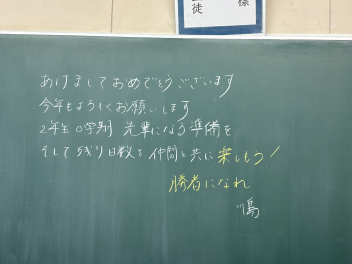 徒 様
あけましておめでとうございます
今年もよろしくお願いします
2年生0学期 先輩になる準備を
そして残り日数を仲間と共に楽しもう!
勝者になれ